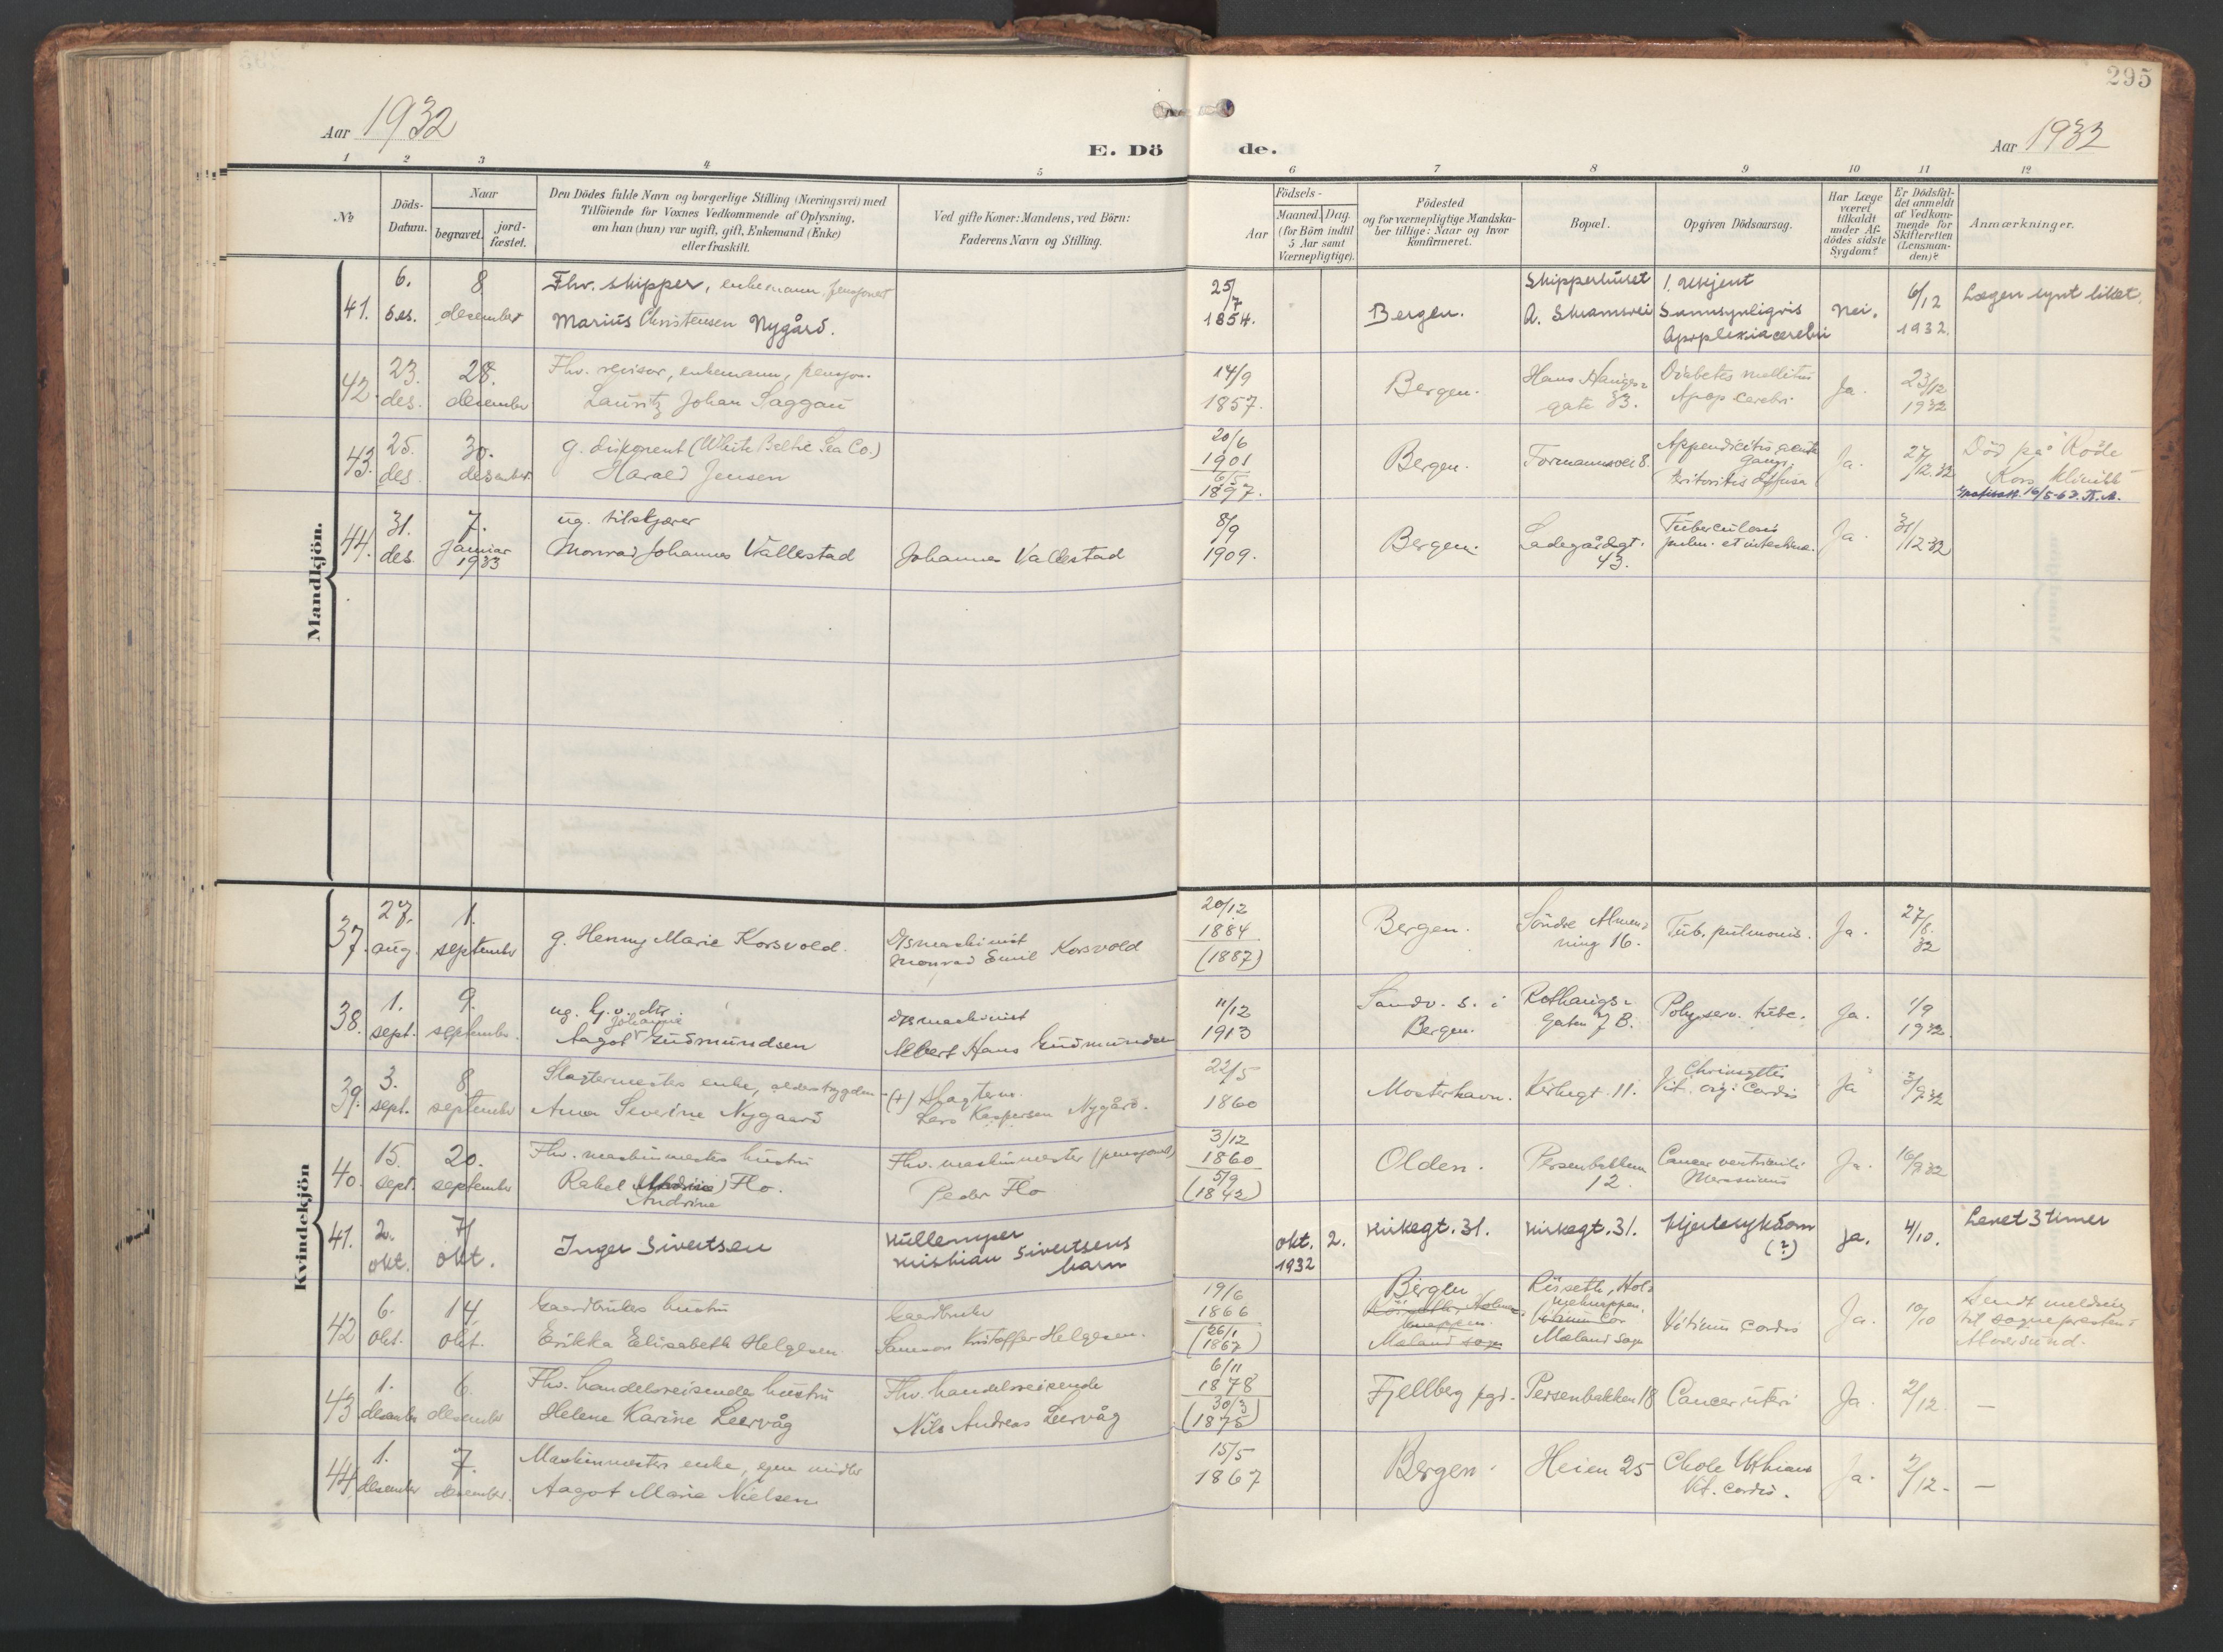 295
Aar 1932
E. Dö de.
Aar 1932
1 2 3 4 5 6 7 8 9 10 11 12
№
Döds-
Datum.
Naar
begravet.
jord-
fæstet.
Den Dödes fulde Navn og borgerlige Stilling (Næringsvei) med
Tilföiende for Voxnes Vedkommende af Oplysning,
om han (hun) var ugift, gift, Enkemand (Enke)
eller fraskilt.
Ved gifte Koner: Mandens, ved Börn:
Faderens Navn og Stilling.
Födsels-
Aar
Maaned.
Dag.
(for Börn indtil
5 Aar samt
Værnepligtige).
Födested
og for værnepligtige Mandska-
ber tillige: Naar og hvor
Konfirmeret.
Bopæl.
Opgiven Dödsaarsag.
Har Læge
været
tilkaldt
under Af-
dödes sidste
Sygdom?
Er Dödsfal-
det anmeldt
af Vedkom-
mende for
Skifteretten
(Lensman-
den)?
Anmærkninger.
Mandkjön.
41.
6.
des.
8
desember
Fhv. skipper, enkemann, pensjonert
Marius Christensen Nygård.
25/7
1854.
Bergen.
Skipperhuset
1. ukjent
Sannsynligvis
Apoplexia cerebri
Nei.
6/12
1932.
Lægen synt liket.
42.
23.
des.
28.
desember
Fhv. revisor, enkemann, pensjon.
Lauritz Johan Saggau
14/9
1857.
Bergen.
Hans Hauges-
gate 33.
Diabetes mellitus
Apop. cerebri
Ja.
23/12
1932
43.
25.
des.
30.
desember
g. disponent (White Baltic Sea Co.)
Harald Jensen
20/6
1901
6/5
1897.
Bergen.
Formannsvei 8.
Appendicitis acuta
gangr.
Peritonitis diffusa
Ja.
27/12.32
Død på Røde
Kors klinikk
44.
31.
des.
7.
januar
1933
ug. tilskjærer
Monrad Johannes Vallestad
Johannes Vallestad
8/9
1909.
Bergen.
Ladegårdsgt.
43.
Tuberculosis
pulm. et intestina.
Ja.
31/12 32
Kvindekjön
37.
27.
aug.
1.
september
g. Henny Marie Korsvold.
D/s maskinist
Monrad Emil Korsvold
20/12
1884
(1887)
Bergen.
Söndre Almen-
ning 16.
Tub. pulmonis.
Ja.
27/8.
32
38.
1.
sept.
9.
september.
Johanne
Aagot Gudmundsen
D/s maskinist
Albert Hans Gudmundsen
11/12
1913
Sandv. s. i
Bergen.
Rothaugs-
gaten 7 B.
Polyserv. tube.
Ja.
1/9
1932.
39.
3.
sept.
8
september
Slagtermesters enke, alderstrygden
Anna Severine Nygaard
(+) slagterm.
Lars Kaspersen Nygård.
22/5
1860
Mosterhavn.
Kirkegt. 11.
Ja
3/9 32
40.
15.
sept.
20.
september
Fhv. maskinmesters hustru
Rakel Andrine Flo.
Fhv. maskinmester (pensjonert)
Peder Flo
3/12
1860
5/9
(1842)
Olden.
Persenbakken
12.
Cancer ventriculi
Marasmus
Ja.
16/9 32
41.
2.
okt.
7/
okt.
Inger Sivertsen
Kullemper
Kristian Sivertsens
barn
okt.
1932
2.
Kirkegt. 31.
Kirkegt. 31.
Hjertesykdom
(?)
ja.
4/10.
Levet 3 timer
42
6.
okt.
14
okt.
Gaardbrukers hustru
Erikka Elisabeth Helgesen
Gaardbruker
Samson Kristoffer Helgesen.
19/6
1866
(26/1
1867)
Bergen
Mæland sogn
Risseth, Hol-
meknappen.
Mæland sogn
Vitium cordis
Ja.
10/10
Sendt melding
til sognepresten i
Alversund.
43
1.
desember
6.
desember
Fhv. handelsreisendes hustru
Helene Karine Leervåg
Fhv. handelsreisende
Nils Andreas Leervåg
6/11
1878
30/3
(1875)
Fjellberg pgd.
Persenbakken 18
Cancer uteri
Ja.
2/12.
—
44.
1.
desember
7.
desember.
Maskinmesters enke, egne midler
Aagot Marie Nielsen
15/5
1867
Bergen.
Heien 25
Vit. cordis.
Ja.
2/12.
—